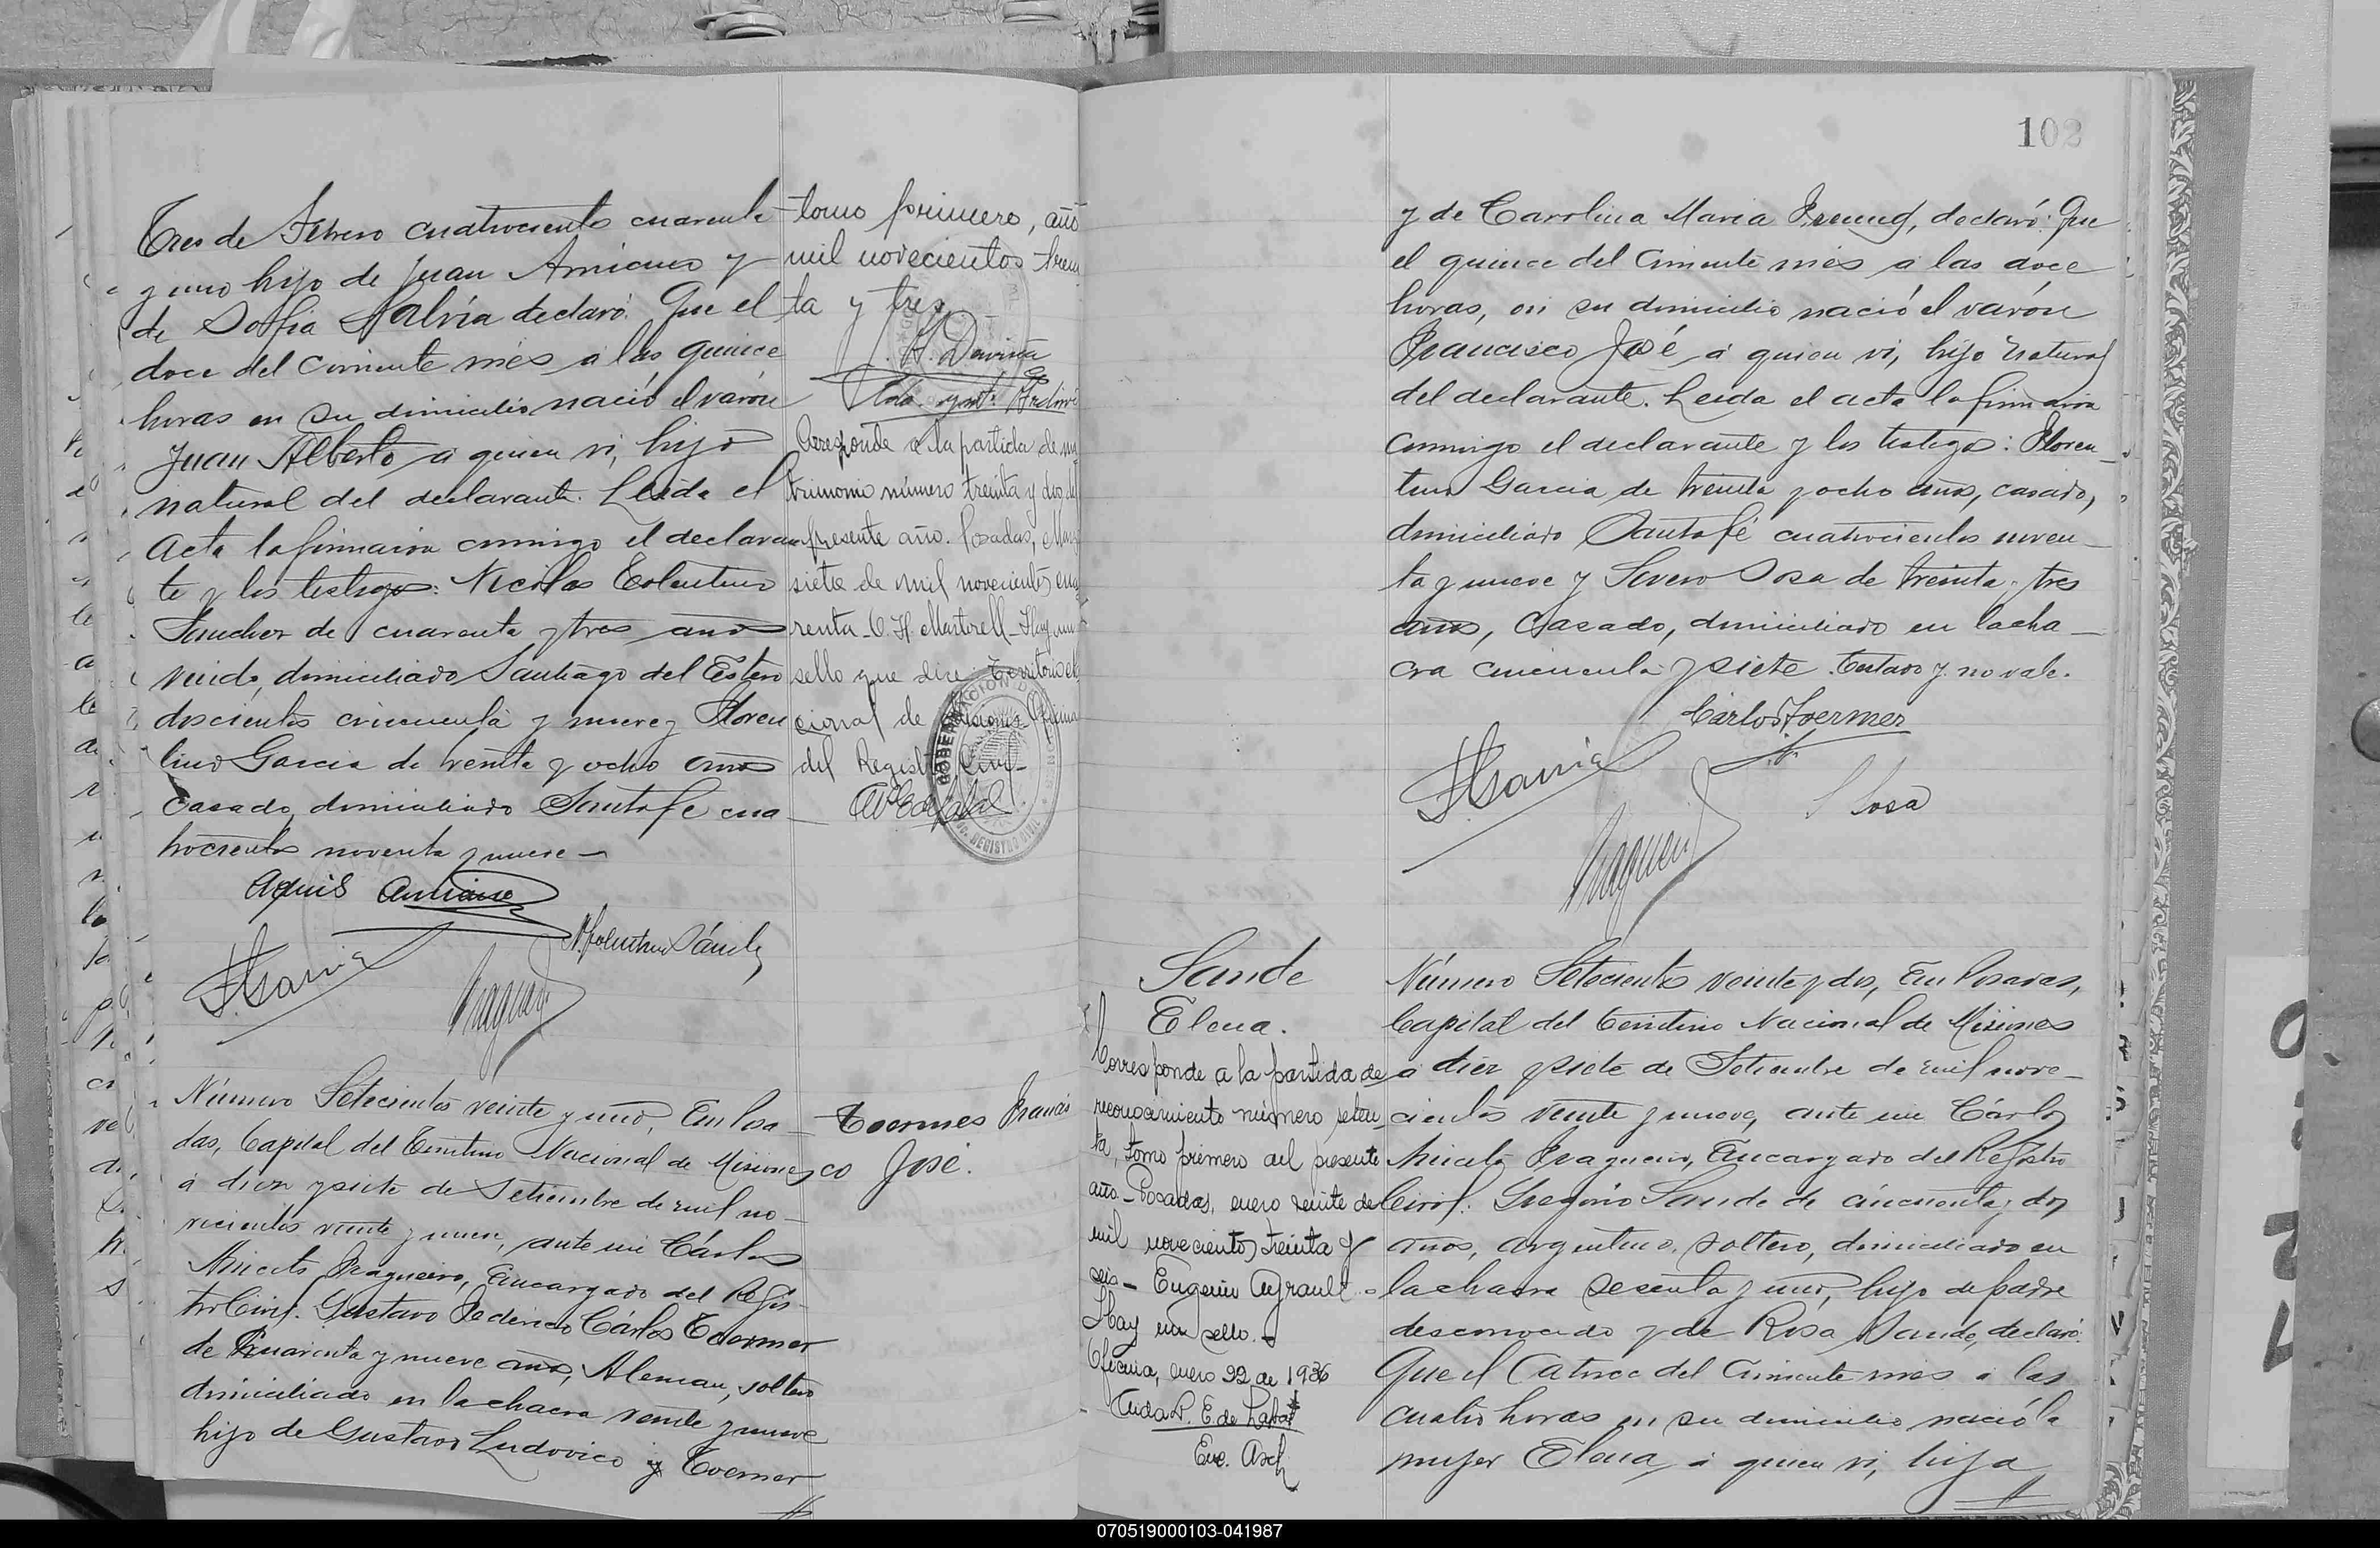 Tres de Febrero cuatrocientos cuarenta
y uno hijo de Juan Amiano y
de Soffia Halvía declaró: Que el
doce del corriente més a las quince
horas en su dimicilio nació el varón
Juan Alberto a quien vi, hijo
natural del declarante. Leida el
Acta la firmaron conmigo el declaran
te y los testigos: Nicolas Tolentino
Sanchez de cuarenta y tres años
viudo, domiciliado Santiago del Estero
doscientos cincuenta y nueve y Floren
tino Garcia de treinta y ocho años
casado, domiciliado Santa fe cua
trocientos noventa y nueve
Amiano
N. Tolentino Sánchez
F. Garcia
Número Setecientos veinte y uno, En Posa
das, Capital del Territorio Nacional de Misiones
á diez y siete de Setiembre de mil no
vecientos veinte y nueve, ante mi Cárlos
Aniceto Fragueiro, Encargado del Regis
tro Civil. Gustavo Federico Cárlos Toermer
de cuarenta y nueve años, Aleman, soltero
domiciliado en la chacra veinte y nueve
hijo de Gustavo Ludovico y Toermer
tomo primero, año
mil novecientos trein
ta y tres
Corresponde a la partida de ma
trimonio número treinta y dos del
presente año. Posadas, Mar
siete de mil novecientos cua
renta. C. H. Martorell - Hay un
sello que dice: Territorio Na
cional de Misiones Oficina
del Registro Civil
GOBERNACION DE
REGISTRO CIVIL
Toermes Francis
co José.
102
y de Carolina Maria Freund, declaró: Que
el quince del corriente més a las doce
horas, en su domicilio nació el varón
Francisco José a quien vi, hijo natural
del declarante. Leida el acta la firmaron
conmigo el declarante y los testigos: Floren
tino Garcia de treinta y ocho años, casado,
domiciliado Santa fé cuatrocientos noven
ta y nueve y Severo Sosa de treinta y tres
años, casado, domiciliado en la cha
cra cincuenta y siete. Testado y. no vale.
Carlos Toermer
F. Garcia
S Sosa
Sande
Elena.
Corresponde a la partida de
reconocimiento número seten
ta, tomo primero del presente
año - Posadas, enero veinte de
mil novecientos treinta y
seis - Eugenio Ayrault -
Hay un sello. -
Oficina, enero 22 de 1936
Enc. Arch.
Número Setecientos veinte y dos, En Posadas,
Capital del Territorio Nacional de Misiones
a diez y siete de Setiembre de mil nove
cientos veinte y nueve, ante mi Cárlos
Aniceto Fragueiro, Encargado del Registro
Civil. Gregorio Sande de cincuenta y dos
años, argentino, soltero, domiciliado en
la chacra sesenta y uno, hijo de padre
desconocido y de Rosa Sande, declaró:
Que el catorce del corriente mes a las
cuatro horas en su domicilio nació la
mujer Elena, a quien vi, hija
070519000103-041987